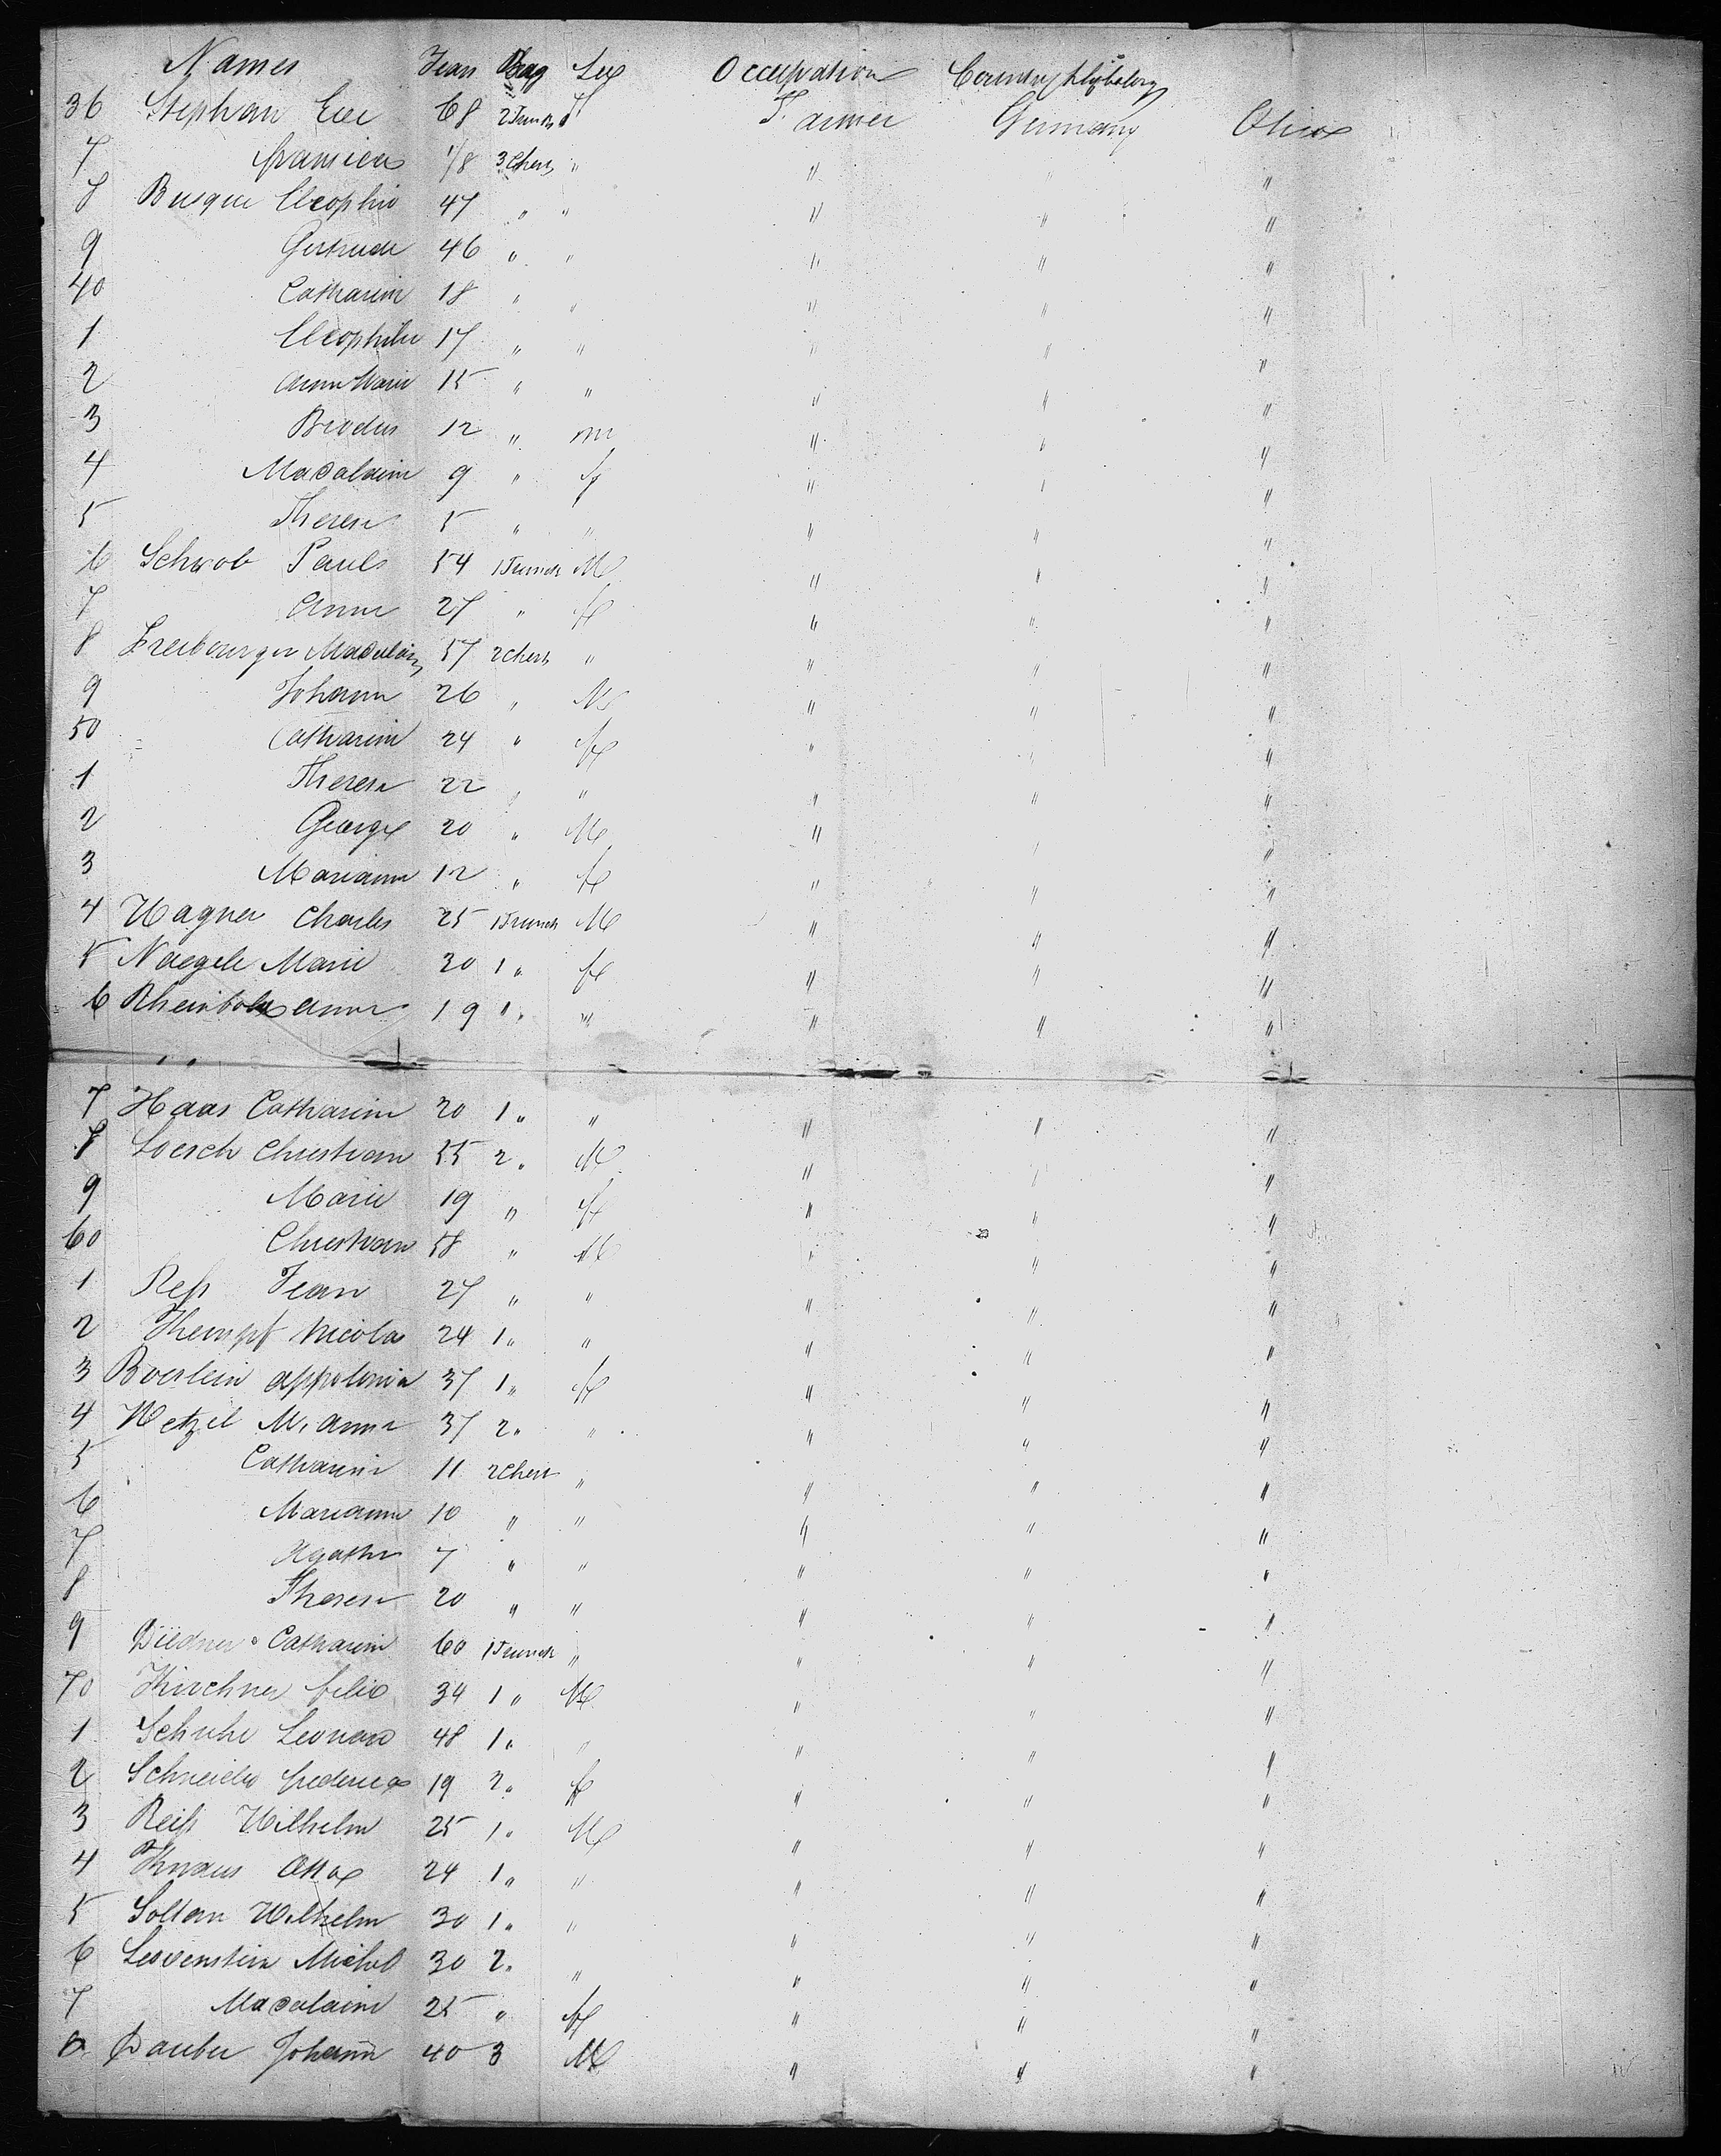 Names Years Bag Sex Occupation Country they belong
36 Stephan Eve 68 2 Trunks f Farmer Germany Ohio
7 fransica 1/8 3 Chests " " " "
8 Busque Cleophio 47 " " " " "
9 Gertrude 46 " " " " "
40 Catharine 18 " " " " "
1 Cleophilie 17 " " " " "
2 Anna Marie 15 " " " " "
3 12 " m " " "
4 Madalaine 9 " f " " "
5 Therese 5 " " " " "
6 Schwob Paul 54 1 Trunck M " " "
7 Anna 27 " f " " "
8 Freibourger Madalain 57 2 Chests " " " "
9 Johann 26 " M " " "
50 Catharine 24 " f " " "
1 Therese 22 " " " " "
2 George 20 " M " " "
3 Mariann 12 " f " " "
4 Wagner Charles 25 1 Trunck M " " "
5 Naegele Marie 30 1 " f " " "
6 Rheinbold Anna 19 " " " " " "
7 Haas Catharine 20 1 " " " " "
8 Loesch Christian 55 2 " M " " "
9 Marie 19 " f " " "
60 Christian 58 " M " " "
1 Reß Jean 27 " " " " "
2 Kempf Nicola 24 1 " " " " "
3 Boerlein Appolonia 37 1 " f " " "
4 Wetzel M. Anna 37 2 " " " " "
5 Catharine 11 2 Chest " " " "
6 Mariann 10 " " " " "
7 Agathe 7 " " " " "
8 Therese 20 " " " " "
9 Catharine 60 1 Trunck " " " "
70 Kirchner felix 34 1 " M " " "
1 Schuhe Leonard 48 1 " " " " "
2 Schneider frederica 19 2 " f " " "
3 Reiß Wilhelm 25 1 " M " " "
4 Knaus Otto 24 1 " " " " "
5 Soltan Wilhelm 30 1 " " " " "
6 Leovenstein Michel 30 2 " " " " "
7 Madalaine 25 " f " " "
8 Dauber Johann 40 3 M " " "